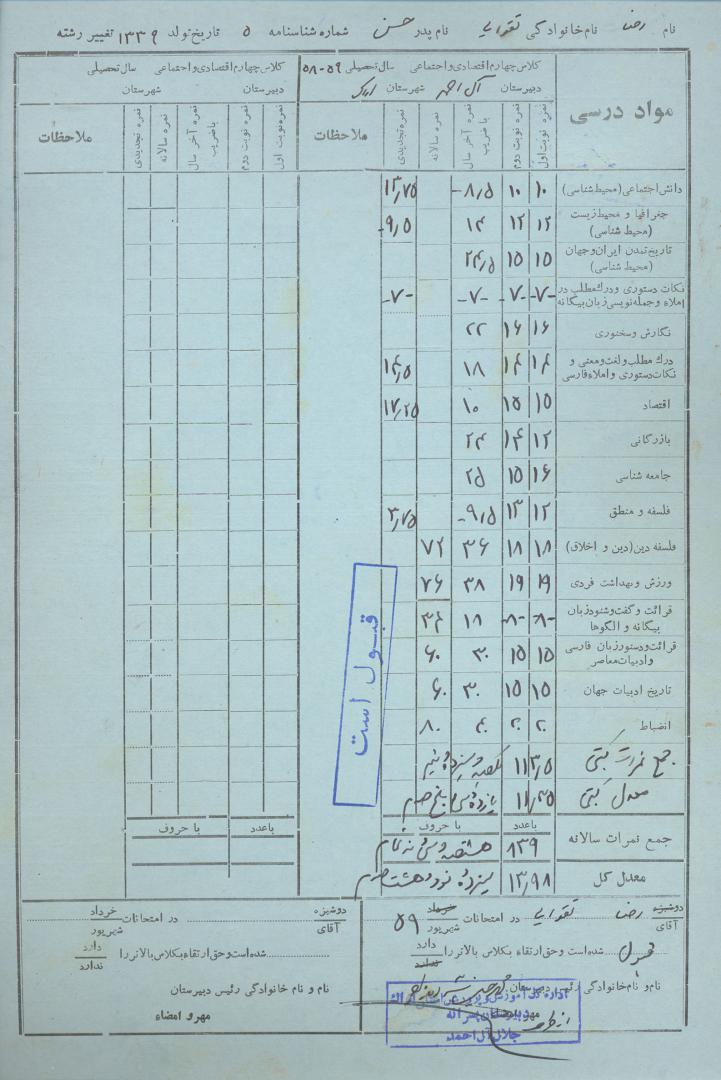 نام رضا نام‌خانوادگی تقوایی نام پدر حسن شماره شناسنامه ۵ تاریخ تولد ۱۳۳۹ تغییر رشته
کلاس چهارم اقتصادی و اجتماعی سال تحصیلی ۵۹-۵۸
دبیرستان آل احمد شهرستان اراک
کلاس چهارم اقتصادی و اجتماعی سال تحصیلی
دبیرستان شهرستان
مواد درسی
نمره نوبت اول
نمره نوبت دوم
نمره آخر سال با ضریب
نمره سالانه
نمره تجدیدی
ملاحظات
نمره نوبت اول
نمره نوبت دوم
نمره آخر سال با ضریب
نمره سالانه
نمره تجدیدی
ملاحظات
دانش اجتماعی (محیط شناسی) ۱۰ ۱۰ ۸/۵- ۱۳/۷۵
جغرافیا و محیط زیست (محیط شناسی) ۱۲ ۱۲ ۱۴ ۹/۵-
تاریخ تمدن ایران و جهان (محیط شناسی) ۱۵ ۱۵ ۲۴/۵
نکات دستوری و درک مطلب در املاء و جمله نویسی زبان بیگانه -۷- -۷- -۷- -۷-
نگارش و سخنوری ۱۶ ۱۶ ۲۲
درک مطلب ولغت ومعنی و نکات دستوری و املاء فارسی ۱۴ ۱۴ ۱۸ ۱۴/۵
اقتصاد ۱۵ ۱۵ ۱۰ ۱۷/۲۵
بازرگانی ۱۲ ۱۴ ۲۴
جامعه شناسی ۱۶ ۱۵ ۲۵
فلسفه و منطق ۱۲ ۱۳ ۹/۵- ۳/۷۵
فلسفه دین (دین و اخلاق) ۱۸ ۱۸ ۳۶ ۷۲
ورزش و بهداشت فردی ۱۹ ۱۹ ۳۸ ۷۶
قرائت و گفت و شنود زبان بیگانه و الگوها -۸- -۸- ۱۸ ۳۴
قرائت و دستور زبان فارسی و ادبیات معاصر ۱۵ ۱۵ ۳۰ ۶۰
تاریخ ادبیات جهان ۱۵ ۱۵ ۳۰ ۶۰
انضباط ۲۰ ۲۰ ۴۰ ۸۰
قبول است
جمع نمرات کتبی ۱۱۳/۵ یکصد و سیزده و نیم
معدل کتبی ۱۱/۳۵ یازده و سی و پنج صدم
با عدد با حروف
با عدد با حروف
جمع نمرات سالانه ۸۳۹ هشتصد و سی و نه تمام
معدل کل ۱۳/۹۸ سیزده و نود و هشت صدم
دوشیزه
آقای رضا تقوایی در امتحانات خرداد
شهریور ۵۹
قبول شده است و حق ارتقاء بکلاس بالاتر را دارد
ندارد
نام و نام خانوادگی رئیس دبیرستان
مهر و امضاء
از طرف
اداره کل آموزش و پرورش استان مرکزی اراک
دبیرستان پسرانه
جلال آل احمد
دوشیزه
آقای در امتحانات خرداد
شهریور
شده است و حق ارتقاء بکلاس بالاتر را دارد
ندارد
نام و نام خانوادگی رئیس دبیرستان
مهر و امضاء